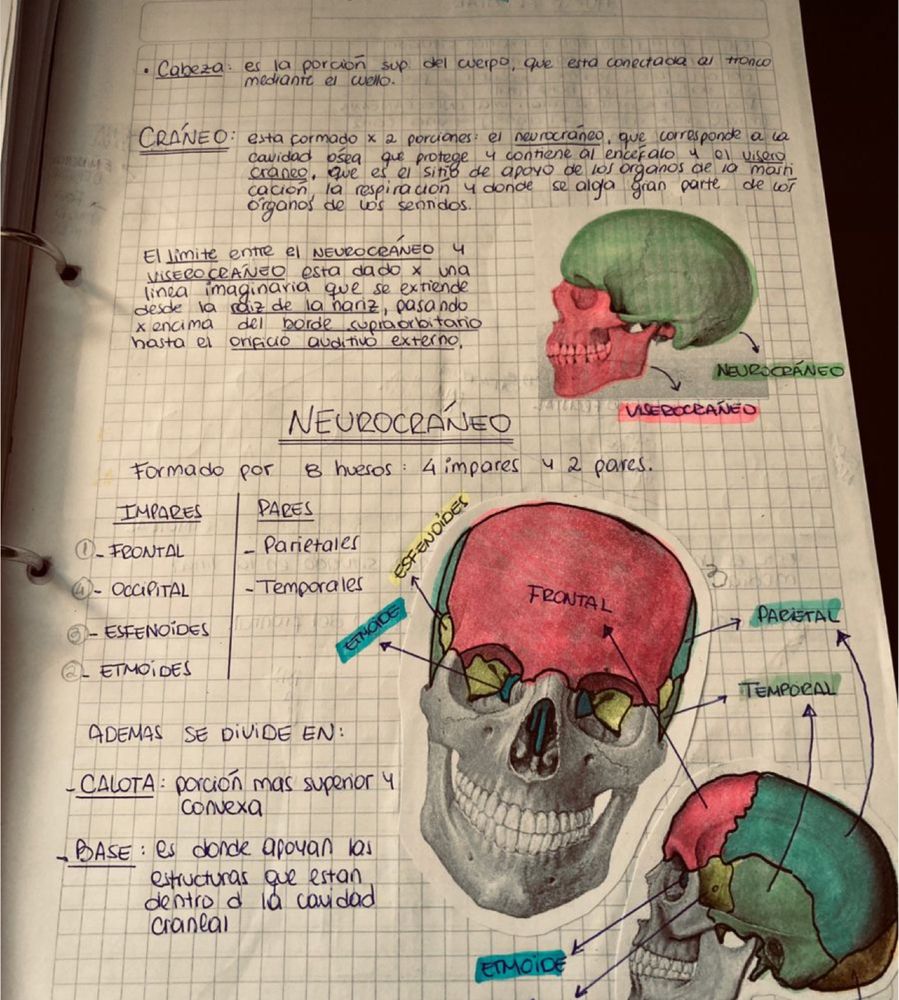 • Cabeza: es la porción sup. del cuerpo, que esta conectada al tronco
mediante el cuello.
CRÁNEO: esta formado x 2 porciones: el neurocráneo, que corresponde a la
cavidad osea que protege y contiene al encéfalo y el visero
craneo, que es el sitio de apoyo de los organos de la masti
cación, la respiración y donde se aloja gran parte de los
órganos de los sentidos.
El límite entre el NEUROCRÁNEO y
VISEROCRÁNEO esta dado x una
linea imaginaria que se extiende
desde la raiz de la nariz, pasando
x encima del borde supraorbitario
hasta el orificio auditivo externo.
NEUROCRÁNEO
VISEROCRANEO
NEUROCRÁNEO
Formado por 8 huesos: 4 impares y 2 pares.
IMPARES
①- FRONTAL
④- OCCIPITAL
③- ESFENOIDES
②- ETMOIDES
PARES
- Parietales
- Temporales
ESFENOIDES
ETMOIDE
FRONTAL
PARIETAL
TEMPORAL
ADEMAS SE DIVIDE EN:
- CALOTA: porción mas superior y
convexa
- BASE: es donde apoyan las
estructuras que estan
dentro d la cavidad
craneal
ETMOIDE